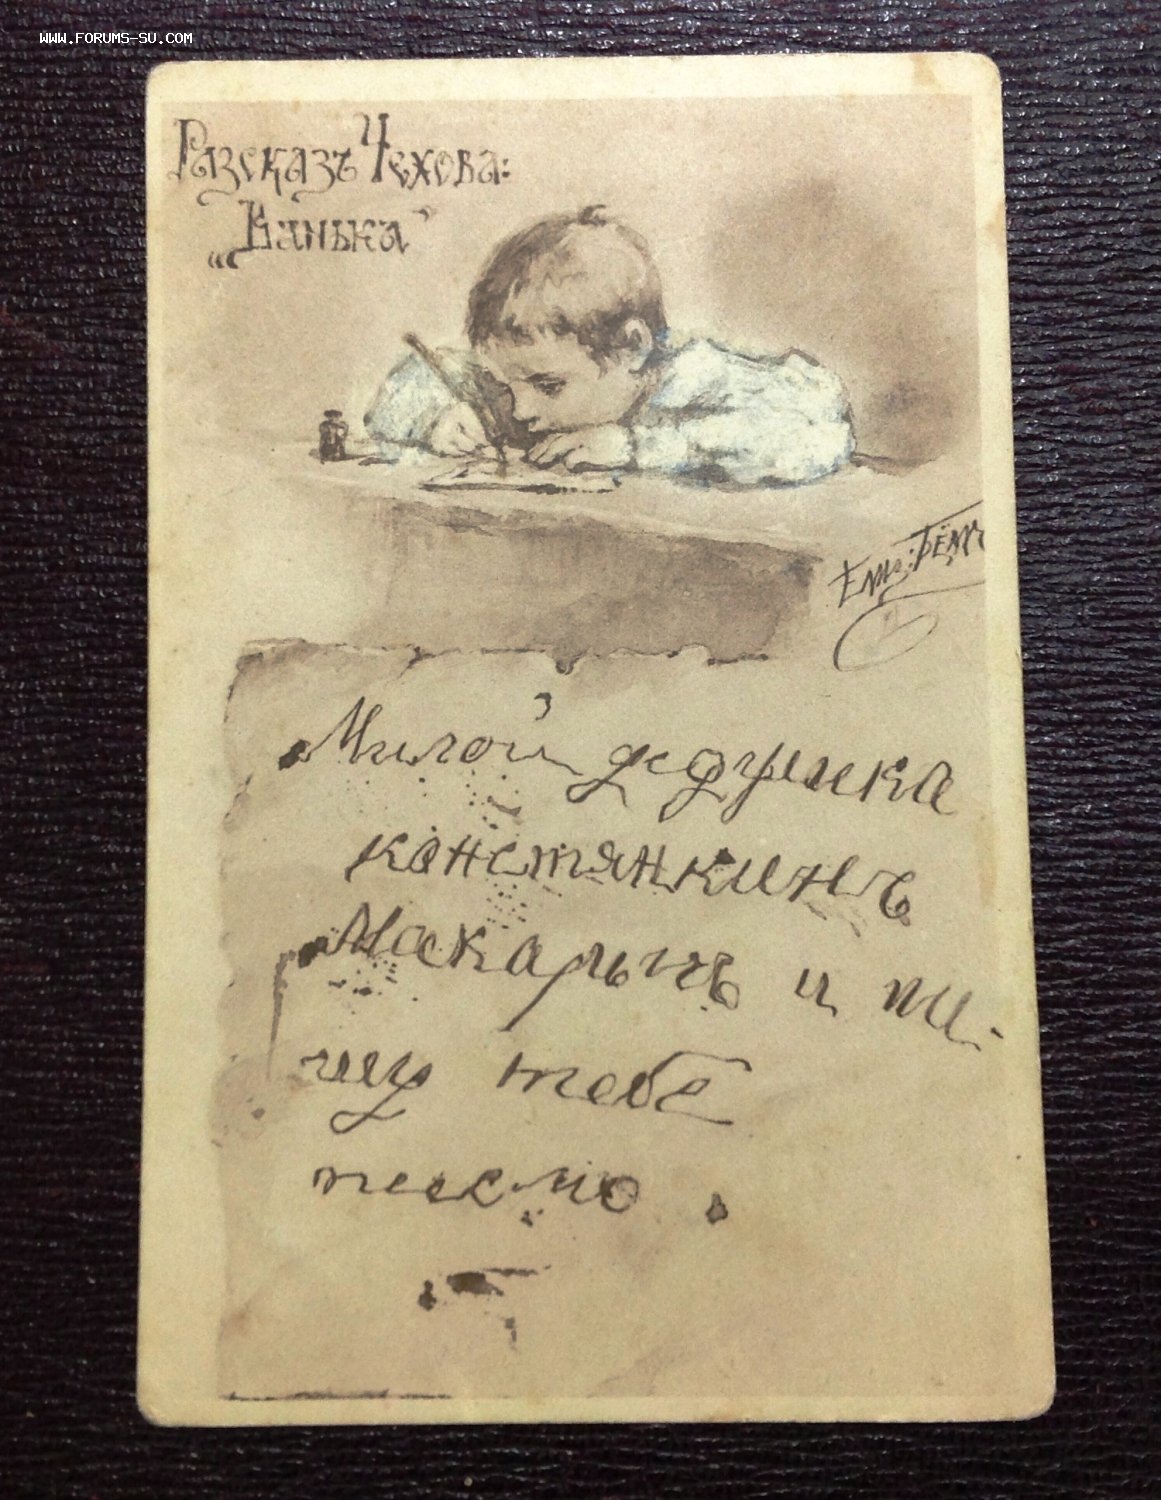 WWW.FORUMS-SU.COM
Разсказъ Чехова:
„Ванька"
Елиз. Бёмъ
Милой дедушка
констянкинъ
Макарычъ и пи-
шу тебе
письмо.